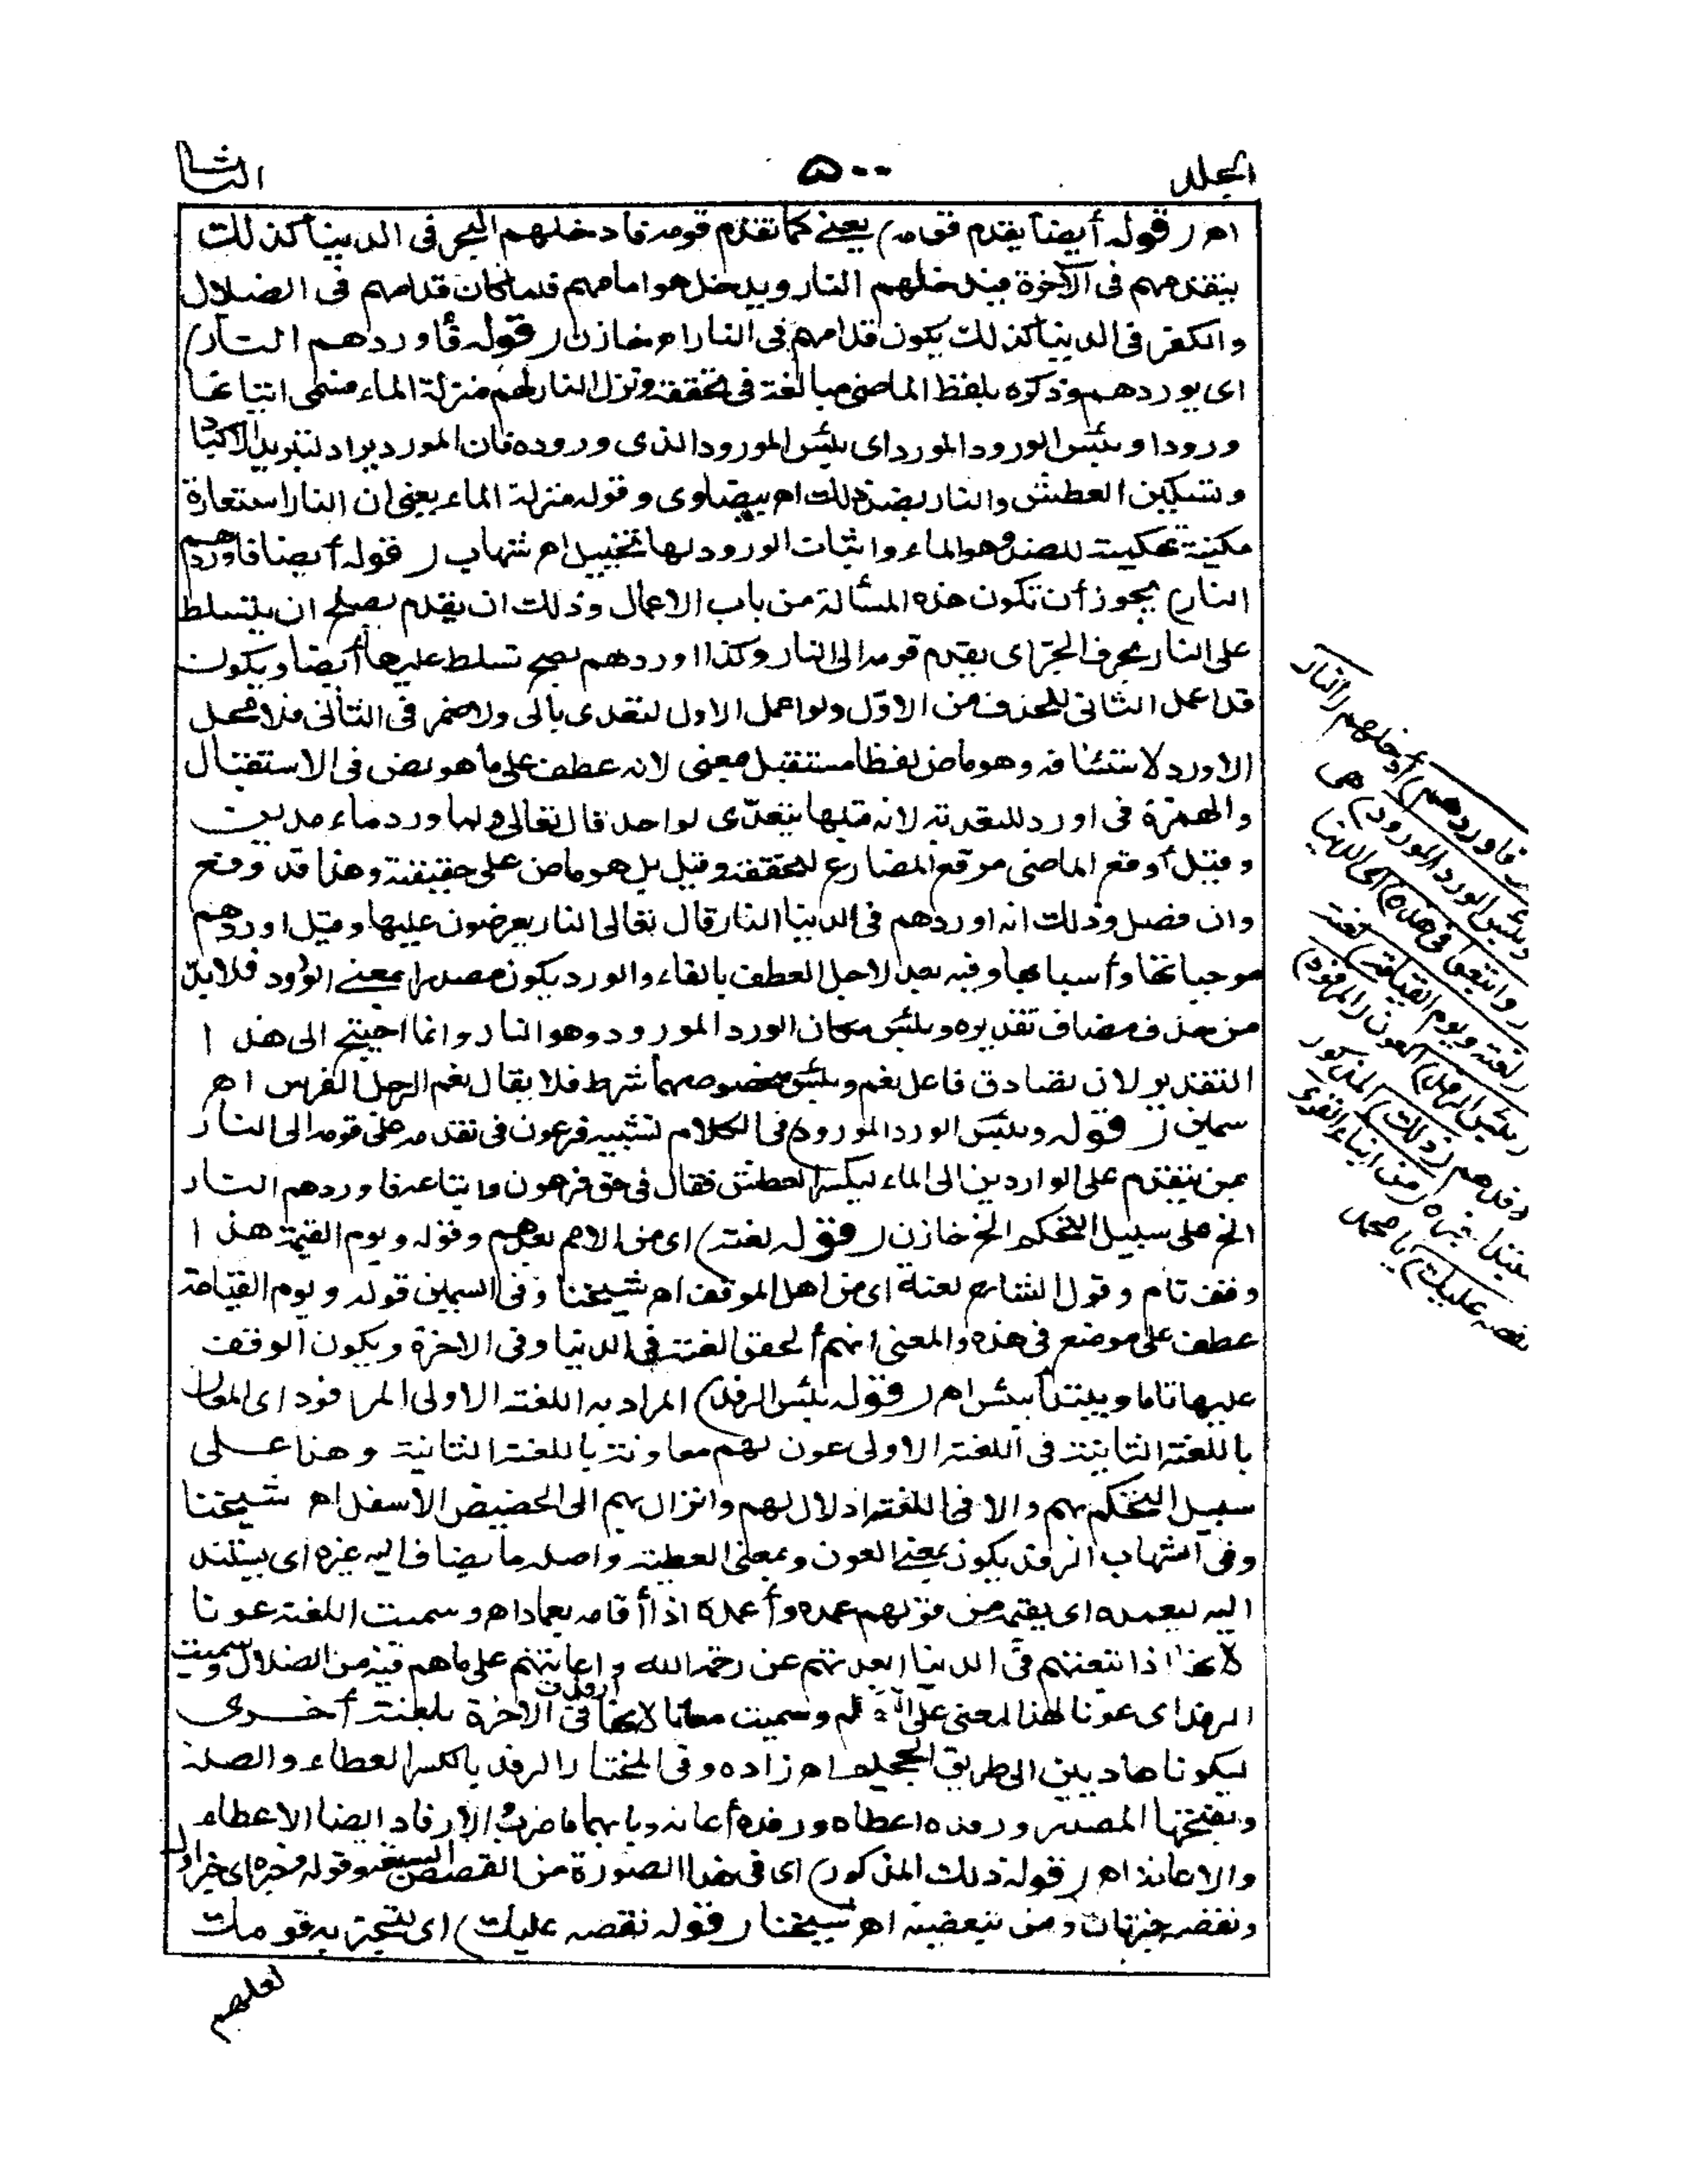 المجلد ٥٠٠ الثا
اهـ (قوله أيضا يقدم قومه) يعنى كما تقدم قومه فادخلهم البحر فى الدنيا كذلك
يتقدمهم فى الآخرة فيدخلهم النار ويدخل هو امامهم فلما كان قدامهم فى الضلال
والكفر فى الدنيا كذلك يكون قدامهم فى النار اهـ خازن (قوله فأوردهم النار)
اى يوردهم وذكره بلفظ الماضى مبالغة فى تحققه ونزل النار لهم منزلة الماء فسمى اتيانها
ورودا وبئس الورود المورد اى بئس المورود الذى وروده فان المورد يراد لتبريد الاكباد
وتسكين العطش والنار بضد ذلك اهـ بيضاوى وقوله منزلة الماء يعنى ان النار استعارة
مكنية تهكمية للضد وهو الماء واثبات الورود لها تخييل اهـ شهاب (قوله أيضا فاوردهم
النار) يجوز أن تكون هذه المسألة من باب الاعمال وذلك ان يقدم يصلح ان يتسلط
على النار بحرف الجر اى يقدم قومه الى النار وكذا اوردهم يصح تسلط عليها أيضا ويكون
قد اعمل الثانى للحذف من الاوّل ولو اعمل الاول لتعدى بالى ولاضمر فى الثانى فلا محل
لاورد لاستئنافه وهو ماض لفظا مستقبل معنى لانه عطف على ما هو نص فى الاستقبال
والهمزة فى اورد للتعدية لانه قبلها يتعدّى لواحد قال تعالى ولما ورد ماء مدين
وقيل أوقع الماضى موقع المضارع لتحققه وقيل بل هو ماض على حقيقته وهذا قد وقع
وانفصل وذلك انه اوردهم فى الدنيا النار قال تعالى النار يعرضون عليها وقيل اوردهم
موجباتها وأسبابها وفيه بعد لاجل العطف بالفاء والورد يكون مصدرا بمعنى الورود فلا بدّ
من حذف مضاف تقديره وبئس مكان الورد المورود وهو النار وانما احتيج الى هذا
التقدير لان تصادق فاعل نعم وبئس ومخصوصهما شرط فلا يقال نعم الرجل الفرس اهـ
سمين (قوله وبئس الورد المورود) فى الكلام تشبيه فرعون فى تقدمه على قومه الى النار
بمن يتقدم على الواردين الى الماء ليكسر العطش فقال فى حق فرعون واتباعه فاوردهم النار
الخ على سبيل التهكم الخ خازن (قوله لعنة) اى من الامم بعدهم وقوله ويوم القيمة هذا
وقف تام وقول الشارح لعنة اى من اهل الموقف اهـ شيخنا وفى السمين قوله ويوم القيامة
عطف على موضع فى هذه والمعنى انهم ألحقوا لعنة فى الدنيا وفى الاخرة ويكون الوقف
عليها تاما ويبتدأ ببئس اهـ (قوله بئس الرفد) المراد به اللعنة الاولى المرفود اى المعان
باللعنة الثانية فى اللعنة الاولى عون لهم معاونة باللعنة الثانية وهذا على
سبيل التهكم بهم والا فى اللعنة اذلال لهم وانزال بهم الى الحضيض الاسفل اهـ شيخنا
وفى الشهاب الرفد يكون بمعنى العون وبمعنى العطية واصله ما يضاف اليه غيره اى يستند
اليه ليعمده اى يقيمه من قولهم عمده وأعمده اذا أقامه بعماد اهـ وسميت اللعنة عونا
لانها اذا تتبعتهم فى الدنيا ابعدتهم عن رحمة الله واعانتهم على ما هم فيه من الضلال وسميت
الرفد اى عونا لهذا المعنى على التهكم وسميت معانا لانها أرفدت فى الآخرة بلعنة أخرى
ليكونا هاديين الى طريق الجحيم اهـ زاده وفى المختار الرفد بالكسر العطاء والصلة
وبفتحها المصدر ورفده اعطاه ورفده أعانه وبابهما ضرب والارفاد ايضا الاعطاء
والاعانة اهـ (قوله ذلك المذكور) اى فى هذا الصورة من القصص السبعة وقوله خبره اى خبر اول
ونقصه خبر ثان ومن تبعيضية اهـ شيخنا (قوله نقصه عليك) اى لتخبر به قومك
لعلهم
فاوردهم) أدخلهم (النار
وبئس الورد المورود) هى
(واتبعوا فى هذه) اى الدنيا
(لعنة ويوم القيامة) لعنة
(بئس الرفد) العون (المرفود)
رفدهم (ذلك) المذكور
مبتدا خبره (من انباء القرى
نقصه عليك) يا محمد